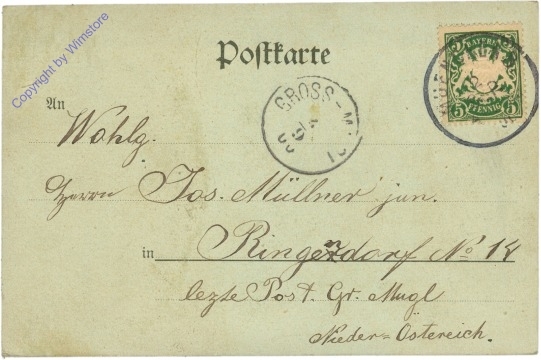 Copyright by Wimstore
Postkarte
BAYERN
5 5
PFENNIG
GROSS-M
An
Wohlg.
Herrn Jos. Müllner jun.
in Ringendorf No 14
lezte Post Gr. Mugl
Nieder=Östereich.